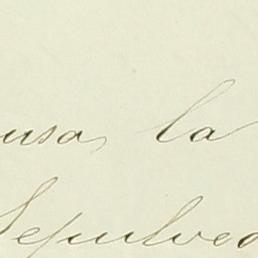 usa, la
Sepulved